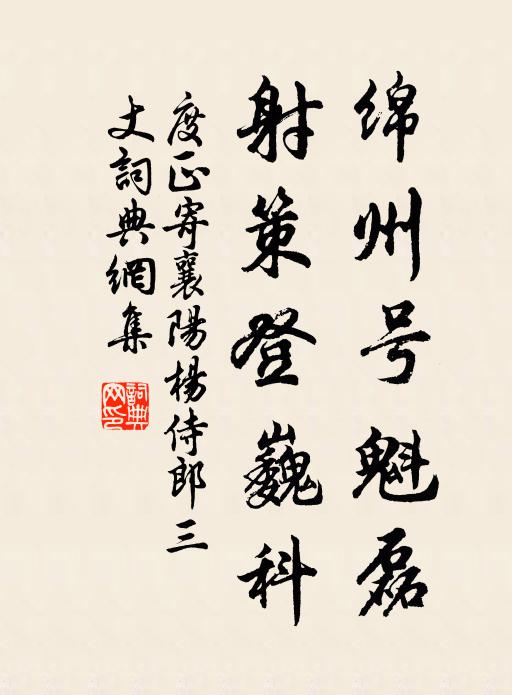 绵州号魁磊
射策登巍科
度正寄襄陽楊侍郎三
丈詞典網集
詞典
网印